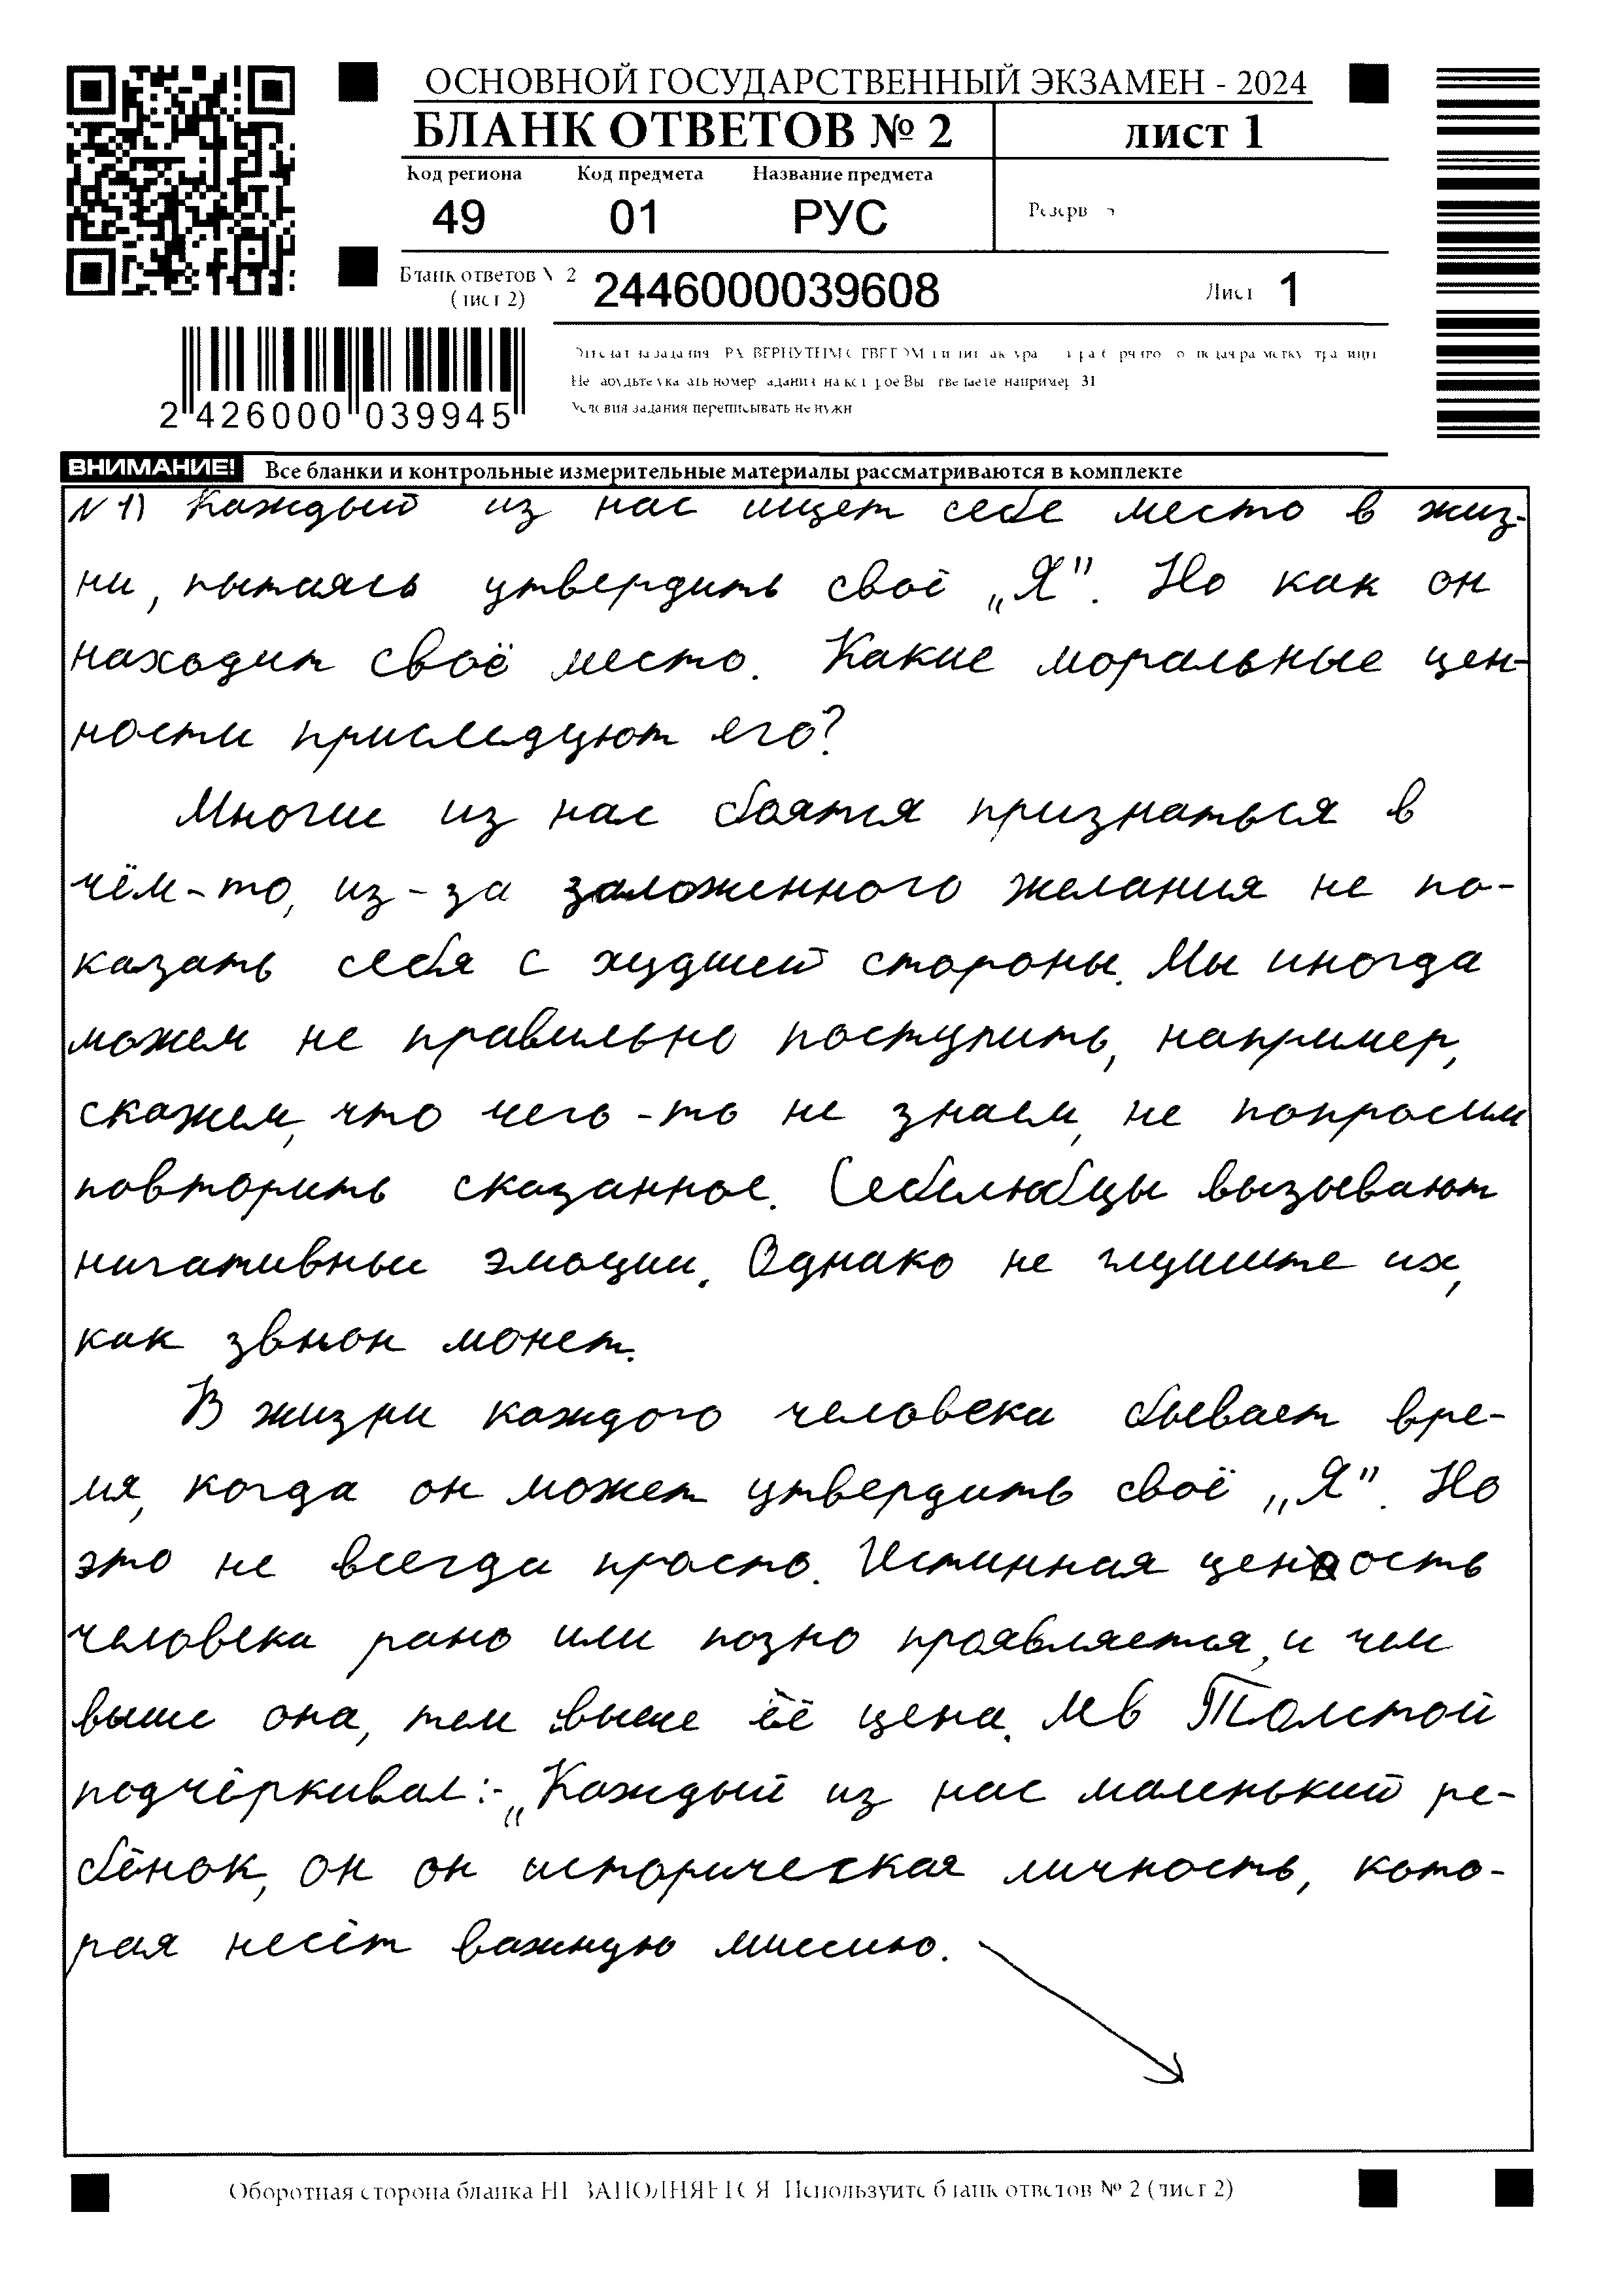 ОСНОВНОЙ ГОСУДАРСТВЕННЫЙ ЭКЗАМЕН - 2024
БЛАНК ОТВЕТОВ № 2 ЛИСТ 1
Код региона Код предмета Название предмета
49 01 РУС Резерв
Бланк ответов № 2
(лист 2) 2446000039608 Лист 1
2 426000 039945
Условия задания переписывать не нужн
ВНИМАНИЕ! Все бланки и контрольные измерительные материалы рассматриваются в комплекте
N 1) Каждый из нас ищет себе место в жиз-
ни, пытаясь утвердить своё „Я". Но как он
находит своё место. Какие моральные цен-
ности приследуют его?
Многие из нас боятся признаться в
чём-то, из-за заложенного желания не по-
казать себя с худшей стороны. Мы иногда
можем не правильно поступить, например,
скажем, что чего-то не знаем, не попросим
повторить сказанное. Себелюбцы вызывают
нигативные эмоции. Однако не глушите их,
как звнон монет.
В жизни каждого человека бывает вре-
мя, когда он может утвердить своё „Я". Но
это не всегда просто. Истинная ценность
человека рано или позно проявляется, и чем
выше она, тем выше её цена. Лев Толстой
подчёркивал:-„Каждый из нас маленький ре-
бёнок, он он историческая личность, кото-
рая несёт важную миссию.
Оборотная сторона бланка НЕ ЗАПОЛНЯЕТСЯ Используйте бланк ответов № 2 (лист 2)